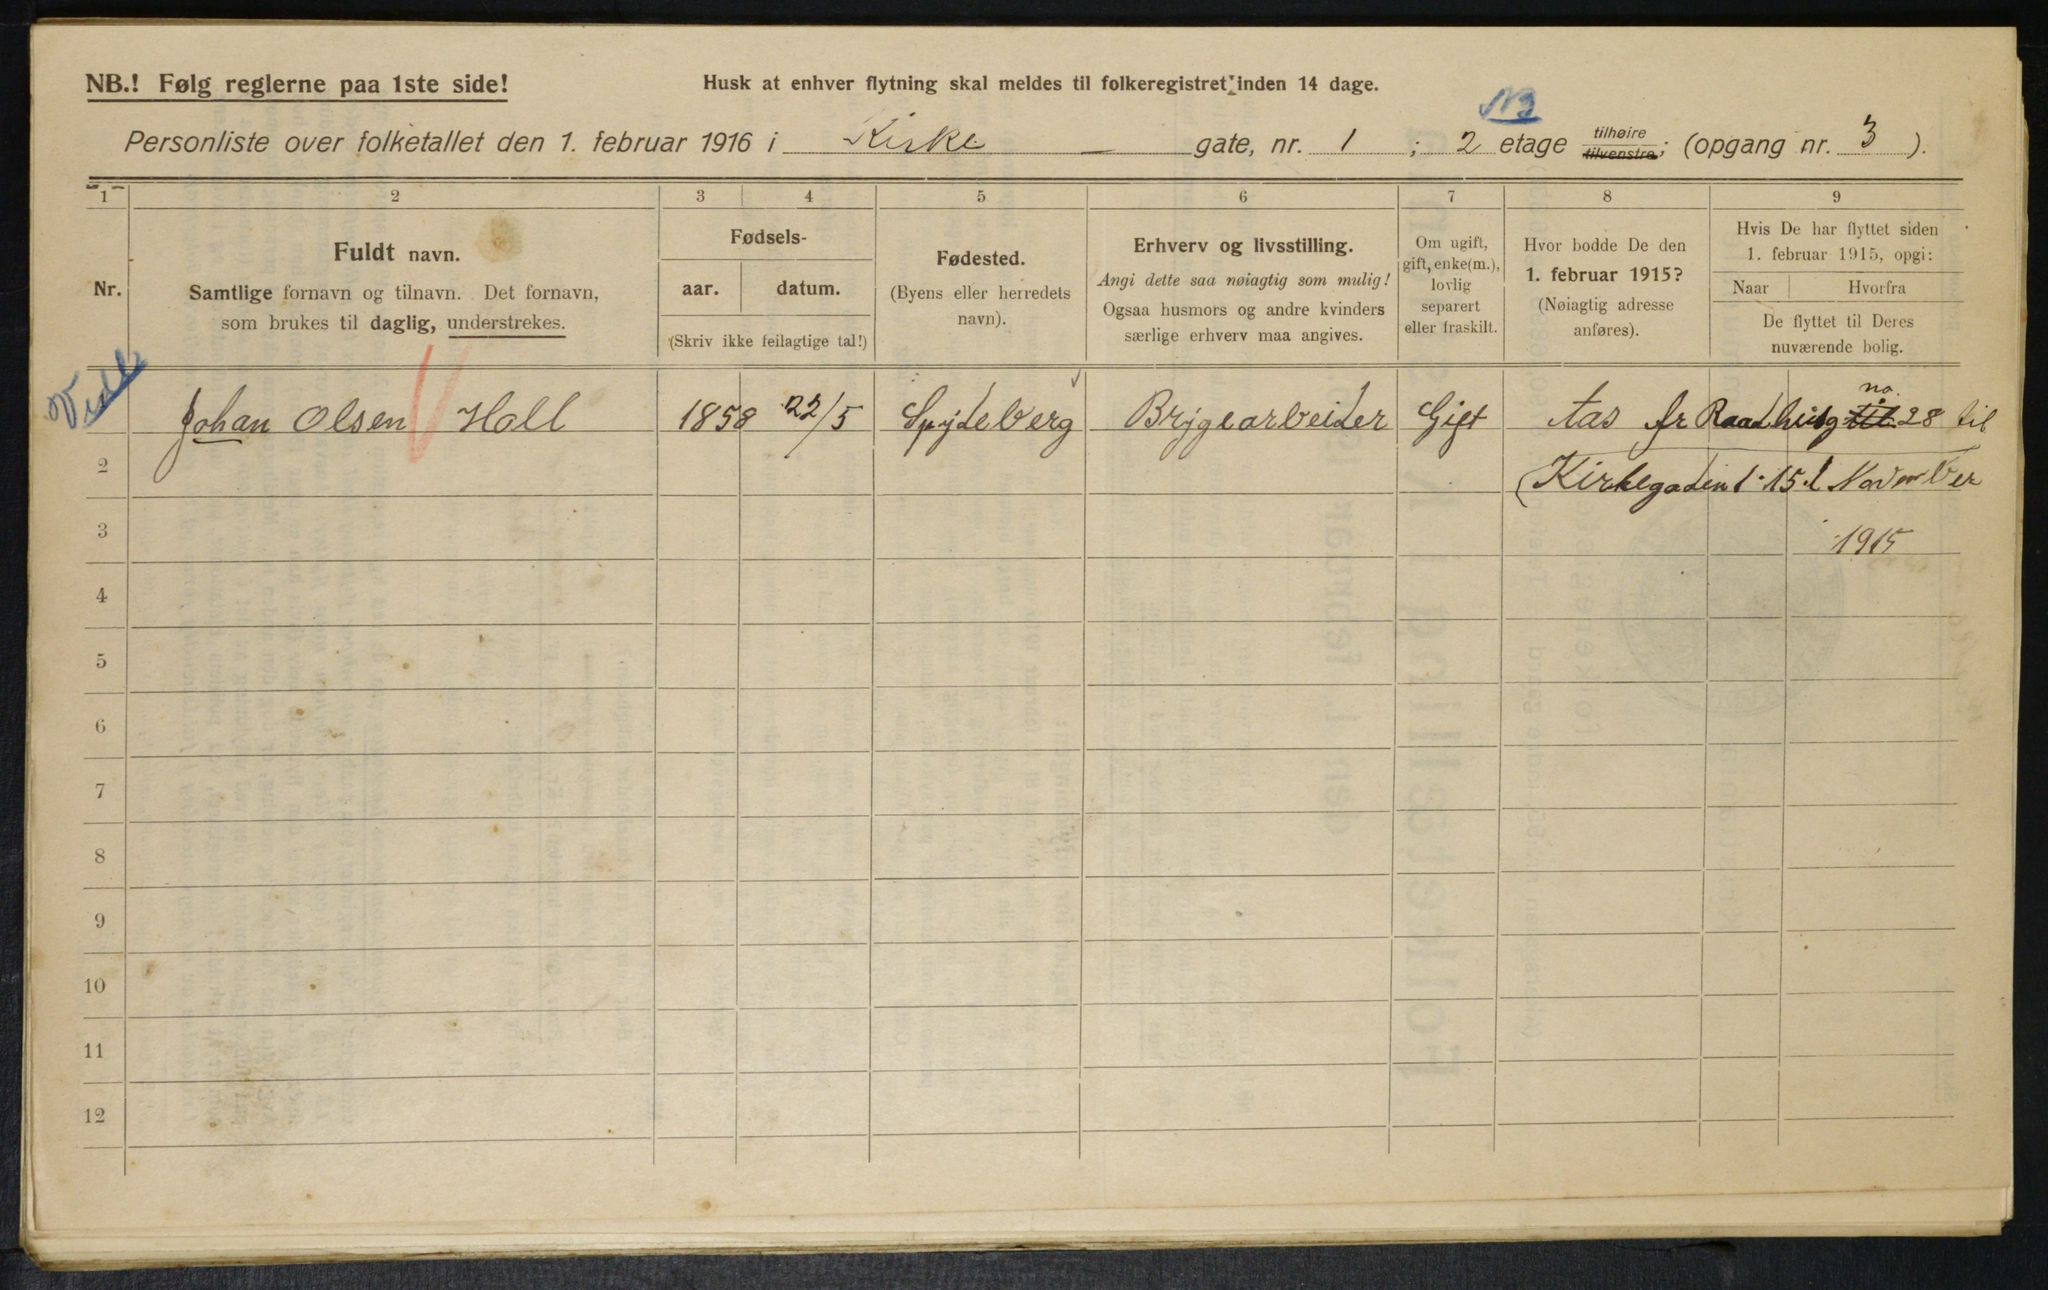 NB.! Følg reglerne paa 1ste side!
Husk at enhver flytning skal meldes til folkeregistret inden 14 dage.
Personliste over folketallet den 1. februar 1916 i Kirke gate, nr. 1 ; 2 etage tilhøire tilvenstre; (opgang nr. 3 ).
1 2 3 4 5 6 7 8 9
Nr.
Fuldt navn.
Samtlige fornavn og tilnavn. Det fornavn,
som brukes til daglig, understrekes.
Fødsels-
aar. datum.
(Skriv ikke feilagtige tal!)
Fødested.
(Byens eller herredets
navn).
Erhverv og livsstilling.
Angi dette saa nøiagtig som mulig!
Ogsaa husmors og andre kvinders
særlige erhverv maa angives.
Om ugift,
gift, enke(m.),
lovlig
separert
eller fraskilt.
Hvor bodde De den
1. februar 1915?
(Nøiagtig adresse
anføres).
Hvis De har flyttet siden
1. februar 1915, opgi:
Naar Hvorfra
De flyttet til Deres
nuværende bolig.
Johan Olsen Holl 1858 22/5 Spydeberg Brygearbeider Gift Aas fr Raadhusg til no 28 til
2 Kirkegaden 1 15 November
3 1915
4
5
6
7
8
9
10
11
12